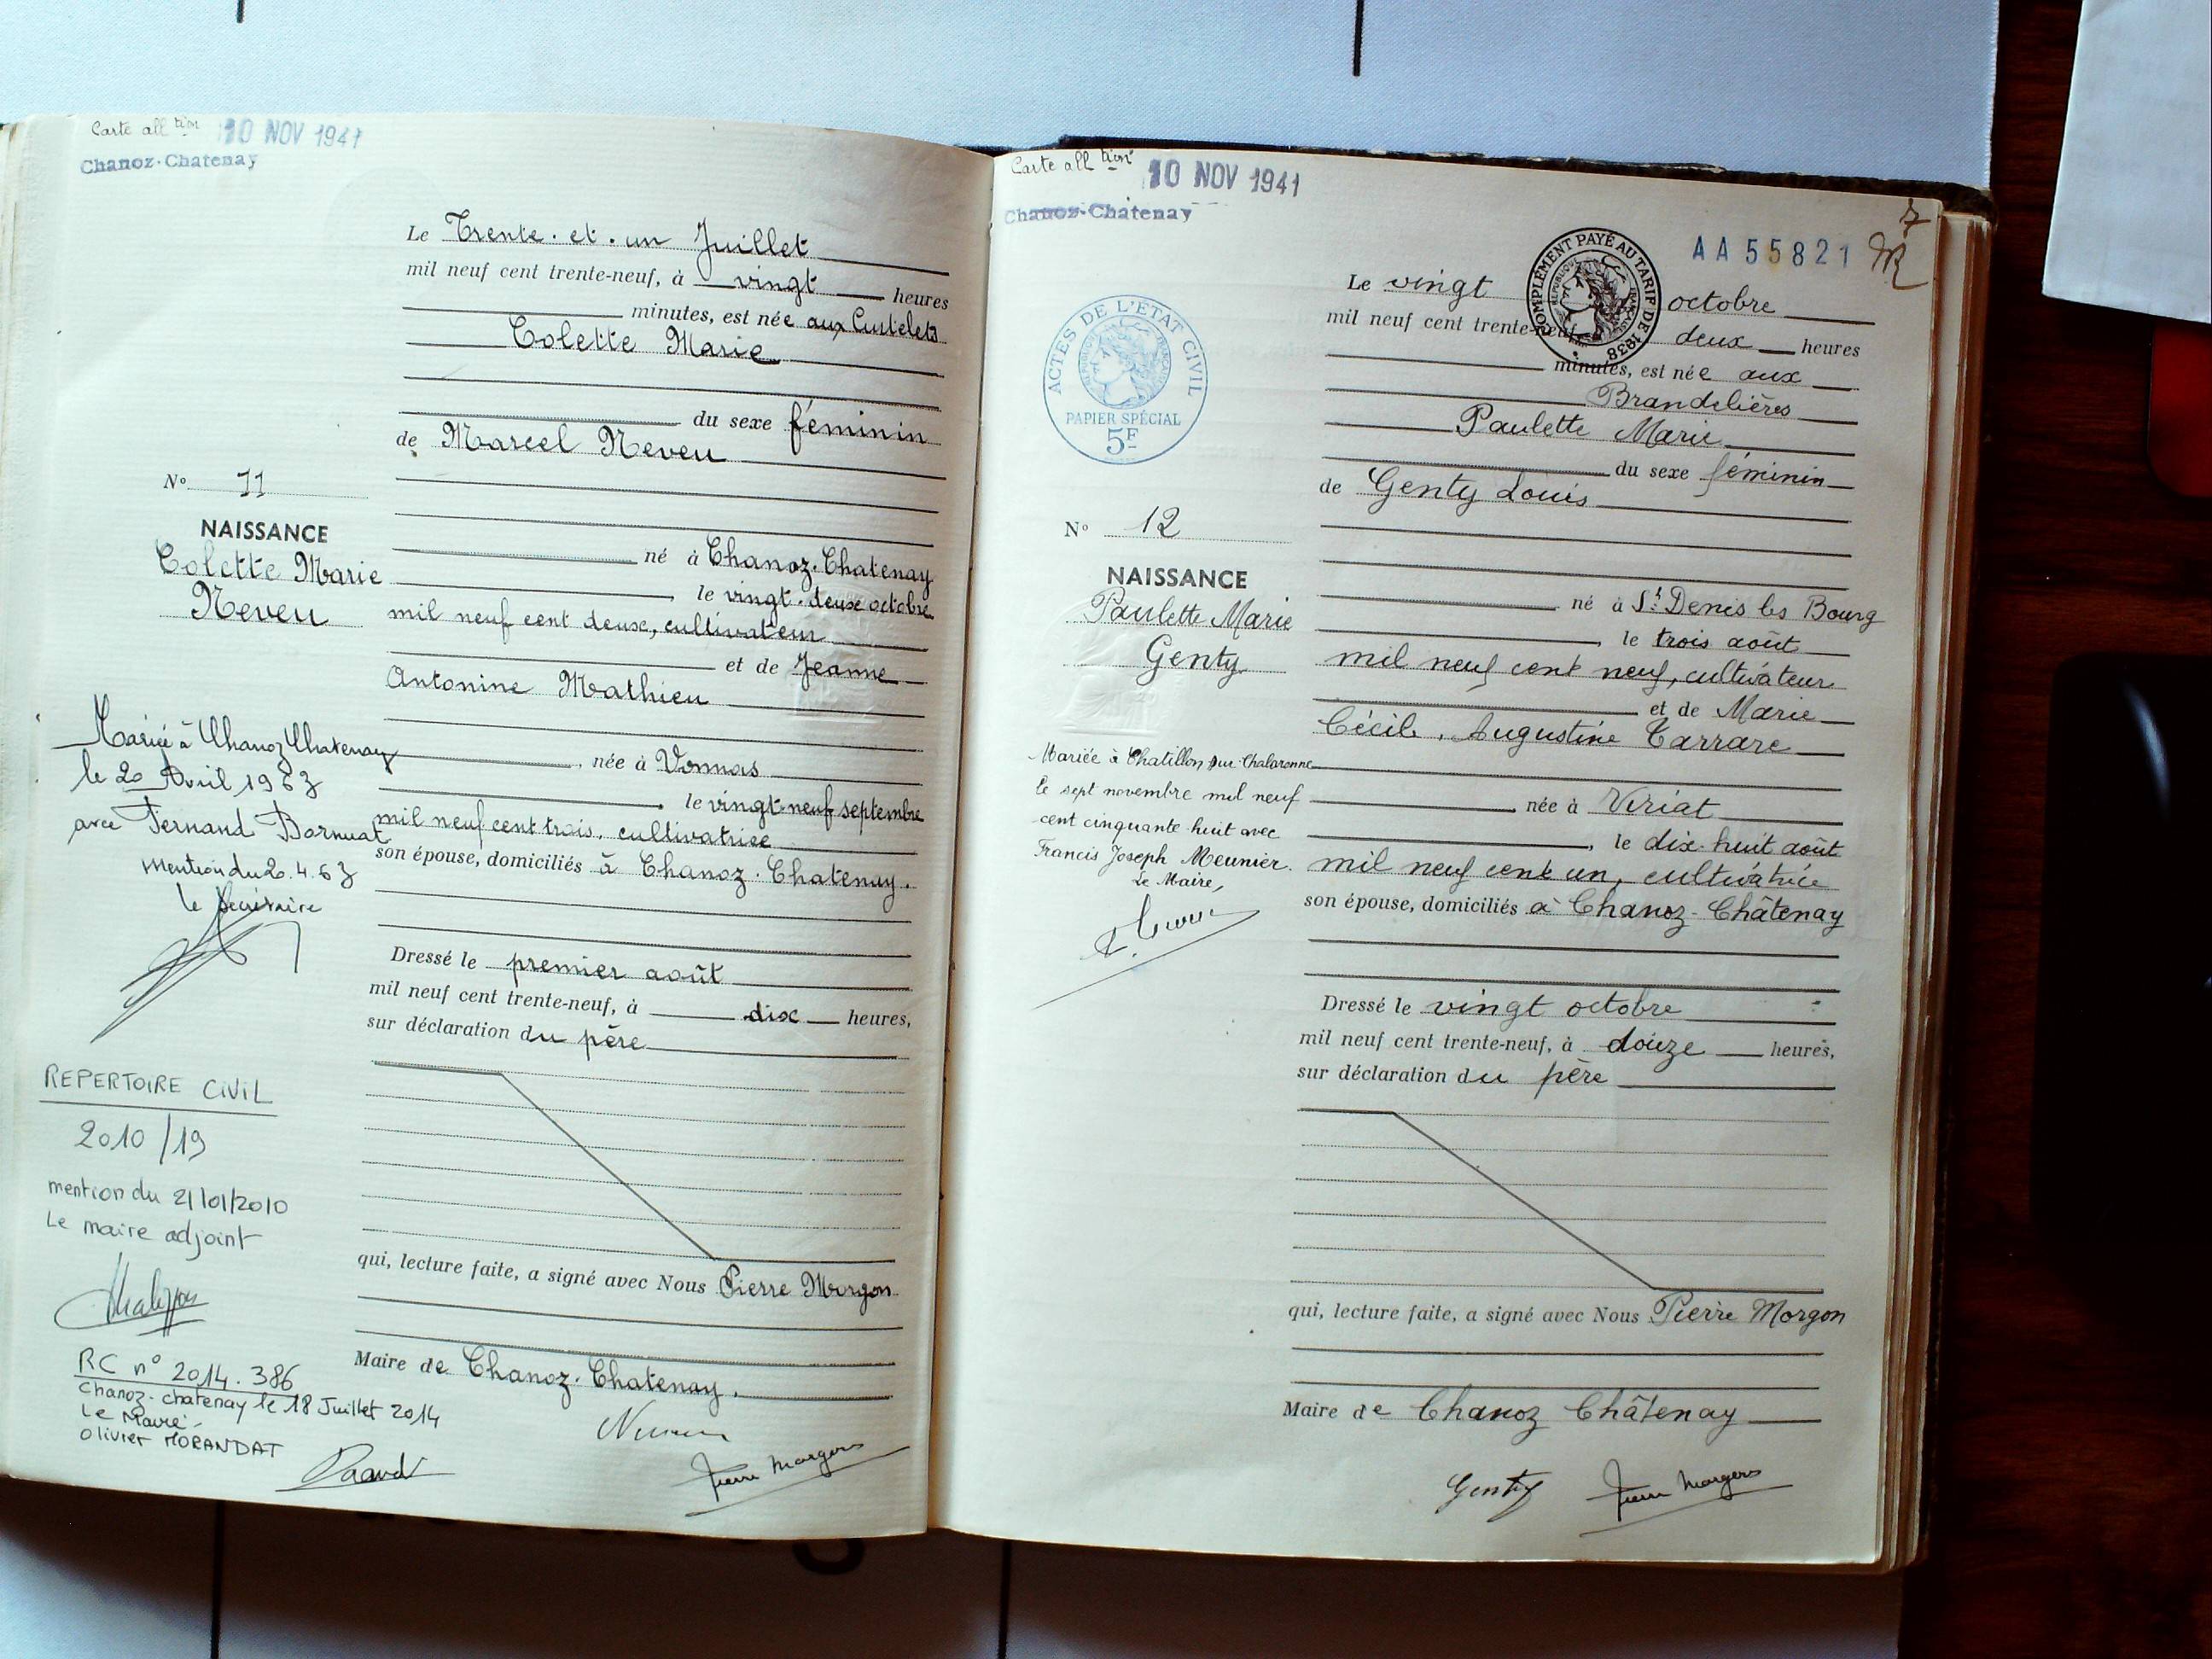 Carte all tion 10 NOV 1941
Chanoz-Chatenay
Le Trente. et. un Juillet
mil neuf cent trente-neuf, à vingt heures
minutes, est née aux Cutelets
Colette Marie
du sexe féminin
de Marcel Neveu
né à Chanoz-Chatenay
le vingt-deux octobre
mil neuf cent deux, cultivateur
et de Jeanne
Antonine Mathieu
née à Vonnas
le vingt-neuf septembre
mil neuf cent trois, cultivatrice
son épouse, domiciliés à Chanoz-Chatenay.
Dressé le premier août
mil neuf cent trente-neuf, à dix heures,
sur déclaration du père
qui, lecture faite, a signé avec Nous Pierre Morgon
Maire de Chanoz-Chatenay.
Neveu
Pierre Morgon
No 11
NAISSANCE
Colette Marie
Neveu
Mariée à Chanoz Chatenay
le 20 Avril 1963
avec Fernand Bornuat
Mention du 20.4.63
le Secrétaire
REPERTOIRE CIVIL
2010/19
mention du 21/01/2010
Le maire adjoint
RC n° 2014.386
Chanoz-chatenay le 18 Juillet 2014
Le Maire,
Olivier MORANDAT
Carte all tion 10 NOV 1941
Chanoz-Chatenay
7
AA 55821
COMPLÉMENT PAYÉ AU TARIF DE 1938
RÉPUBLIQUE FRANÇAISE
ACTES DE L'ÉTAT CIVIL
RÉPUBLIQUE FRANÇAISE
PAPIER SPÉCIAL
5F
Le vingt octobre
mil neuf cent trente-neuf, deux heures
minutes, est née aux
Brandelières
Paulette Marie
du sexe féminin
de Genty Louis
né à St Denis les Bourg
le trois août
mil neuf cent neuf, cultivateur
et de Marie
Cécile, Augustine Tarrare
née à Viriat
le dix-huit août
mil neuf cent un, cultivatrice
son épouse, domiciliés à Chanoz-Châtenay
Dressé le vingt octobre
mil neuf cent trente-neuf, à douze heures,
sur déclaration du père
qui, lecture faite, a signé avec Nous Pierre Morgon
Maire de Chanoz Châtenay
Genty
Pierre Morgon
No 12
NAISSANCE
Paulette Marie
Genty
Mariée à Chatillon sur Chalaronne
le sept novembre mil neuf
cent cinquante huit avec
Francis Joseph Meunier.
Le Maire,